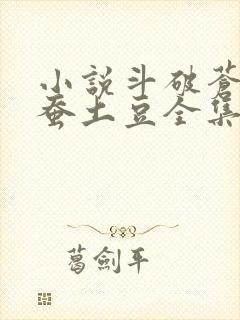 小說斗破蒼
蚕土豆全集
葛劍平